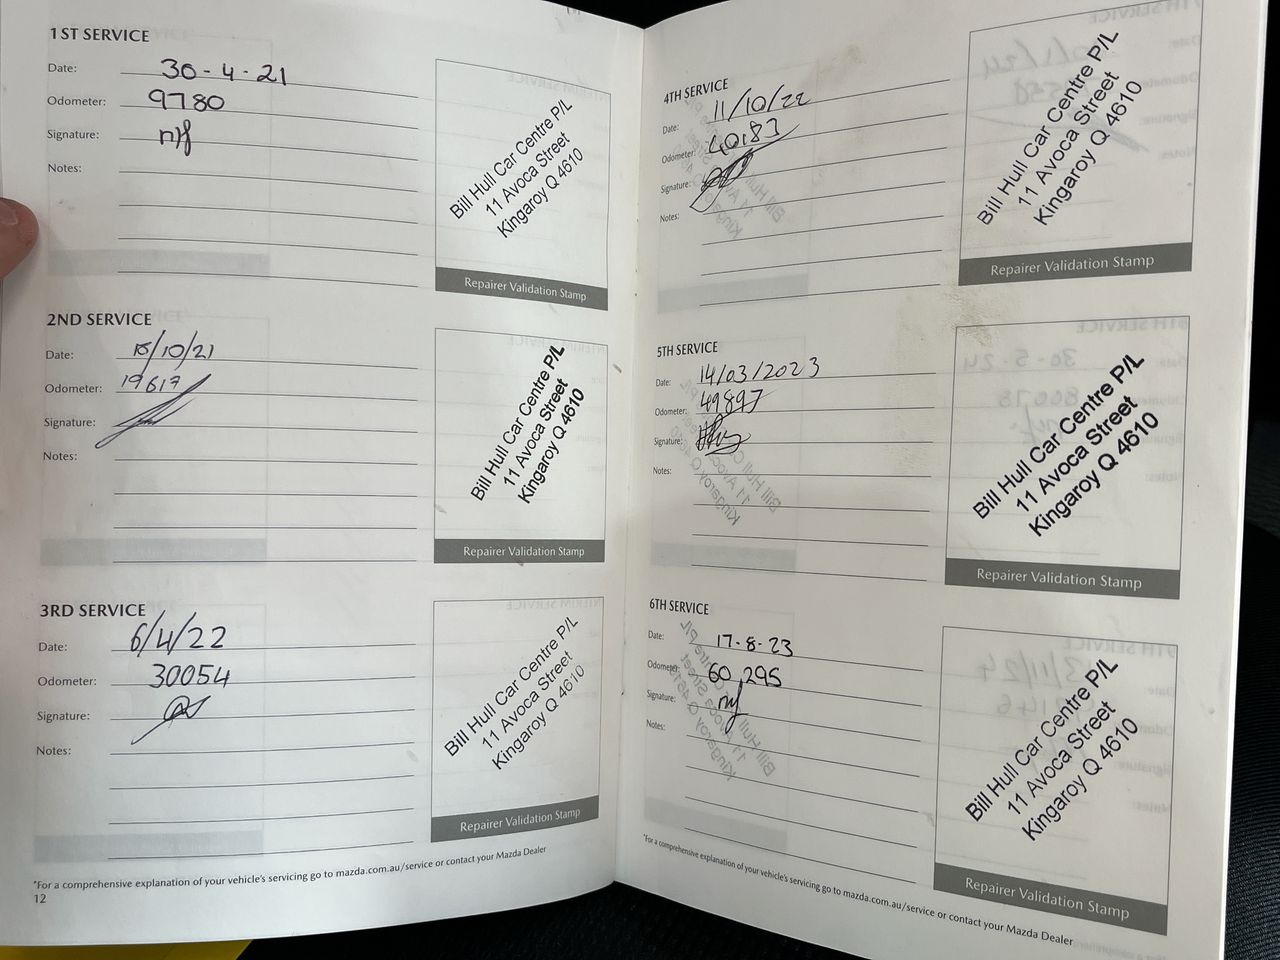 1ST SERVICE
Date: 30-4-21
Odometer: 9780
Signature:
Notes:
Bill Hull Car Centre P/L
11 Avoca Street
Kingaroy Q 4610
Repairer Validation Stamp
2ND SERVICE
Date: /10/21
Odometer: 19617
Signature:
Notes:
Bill Hull Car Centre P/L
11 Avoca Street
Kingaroy Q 4610
Repairer Validation Stamp
3RD SERVICE
Date: 6/4/22
Odometer: 30054
Signature:
Notes:
Bill Hull Car Centre P/L
11 Avoca Street
Kingaroy Q 4610
Repairer Validation Stamp
*For a comprehensive explanation of your vehicle's servicing go to mazda.com.au/service or contact your Mazda Dealer
12
4TH SERVICE
Date: 11/10/22
Odometer: 40183
Signature:
Notes:
Bill Hull Car Centre P/L
11 Avoca Street
Kingaroy Q 4610
Repairer Validation Stamp
5TH SERVICE
Date: 14/03/2023
Odometer: 49897
Signature:
Notes:
Bill Hull Car Centre P/L
11 Avoca Street
Kingaroy Q 4610
Repairer Validation Stamp
6TH SERVICE
Date: 17-8-23
Odometer: 60,295
Signature:
Notes:
Bill Hull Car Centre P/L
11 Avoca Street
Kingaroy Q 4610
Repairer Validation Stamp
*For a comprehensive explanation of your vehicle's servicing go to mazda.com.au/service or contact your Mazda Dealer